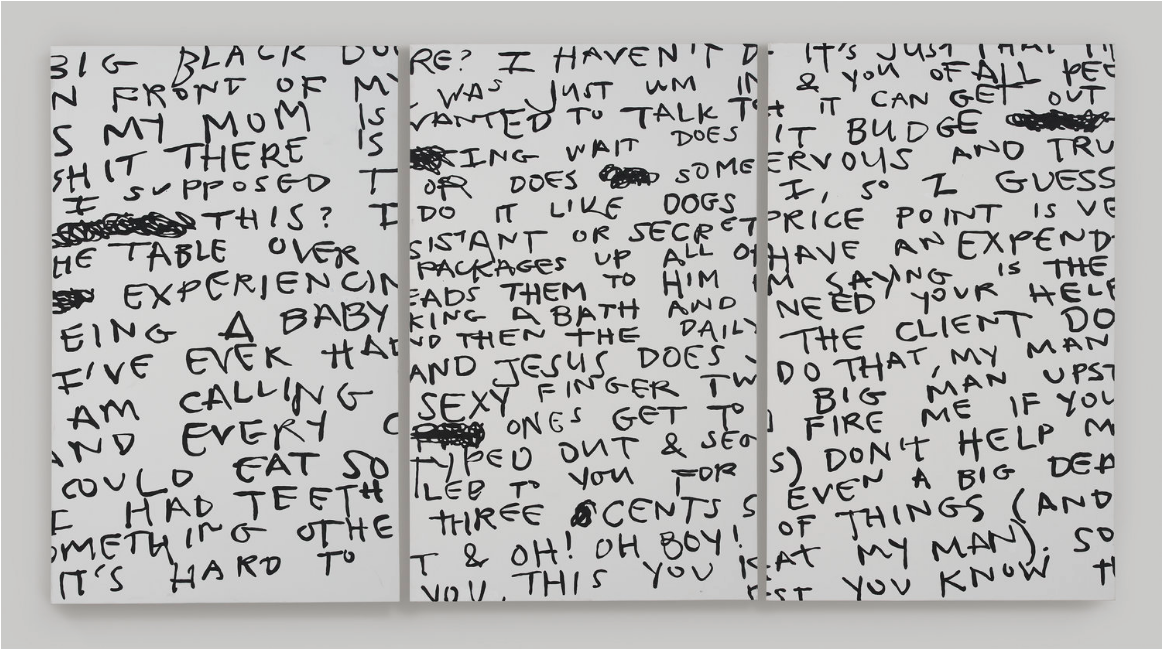 BIG BLACK DO
N FRONT OF MY
S MY MOM IS
SHIT THERE IS
I SUPPOSED T
THIS? I
HE TABLE OVER
EXPERIENCIN
EING A BABY
I'VE EVER HAD
AM CALLING
AND EVERY C
COULD EAT SO
I HAD TEETH
OMETHING OTHE
IT'S HARD TO
RE? I HAVEN'T D
WAS JUST UM IN
WANTED TO TALK TO
DOES
ING WAIT
OR DOES SOME
DO IT LIKE DOGS
SISTANT OR SECRET
PACKAGES UP ALL OF
EADS THEM TO HIM
KING A BATH AND
ND THEN THE DAILY
AND JESUS DOES
SEXY FINGER TW
ONES GET TO
TYPED OUT & SEO
LED TO YOU FOR
THREE CENTS S
T & OH! OH BOY!
YOU, THIS YOU K
IT'S JUST THAT TH
& YOU OF ALL PEE
IT CAN GET OUT
IT BUDGE
ERVOUS AND TRU
I, SO I GUESS
PRICE POINT IS VE
HAVE AN EXPEND
M SAYING IS THE
NEED YOUR HELP
THE CLIENT DO
DO THAT, MY MAN
BIG MAN UPST
FIRE ME IF YOU
S) DON'T HELP M
EVEN A BIG DEA
OF THINGS (AND
EAT MY MAN). SO
EST YOU KNOW TH